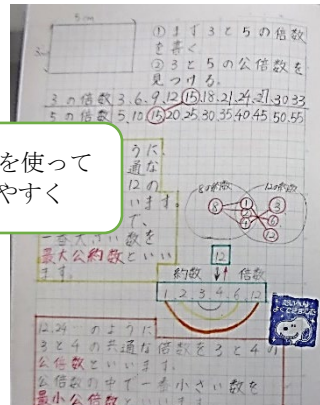 5cm
3cm
① まず3と5の倍数
を書く
② 3と5の公倍数を
見つける。
3の倍数 3.6.9.12.⑮.18.21.24.27.30.33
5の倍数 5.10.⑮.20.25.30.35.40.45.50.55
を使って
やすく
うに、
通な
12の
います。
で、
一番大きい数を
最大公約数といい
ます。
8の約数
12の約数
8
1
2
4
3
6
12
12
約数
倍数
1.2.3.4.6.12
12.24…のように
3と4の共通な倍数を3と4の
公倍数といいます。
公倍数の中で一番小さい数を
最小公倍数といいます